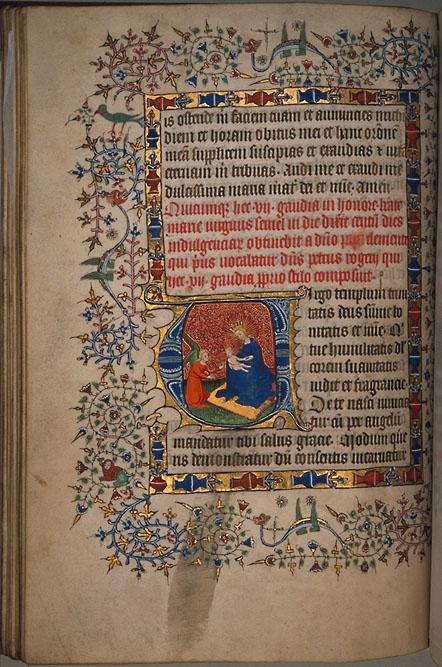 is ostende m faciem tuam et annuncies michi
diem et horam obitus mei et hanc oronē
meā supplicem suscipias et exaudias & vitā
eternam m tribuas. Audi me et exaudi me
dulcissima maria mat̄ dei et mīe. amen.
Quicumq; hec .vii. gaudia in honore beate
marie virginis semel in die dixit centū dies
indulgenciar obtinebit a dño clemente
qui pius vocabatur dñs petrus rogerij qui
hec .vii. gaudia pprio stilo composuit.
Virgo templum trini
tatis deus sūme bo
nitatis et mīe. Q
tue humilitatis d
corem suavitatis
vidit et fragrancie
De te nasci nuncia
tur cū per angelū
mandatur tibi salus gracie. Modum que
ris demonstratur dū consentis incarnatur